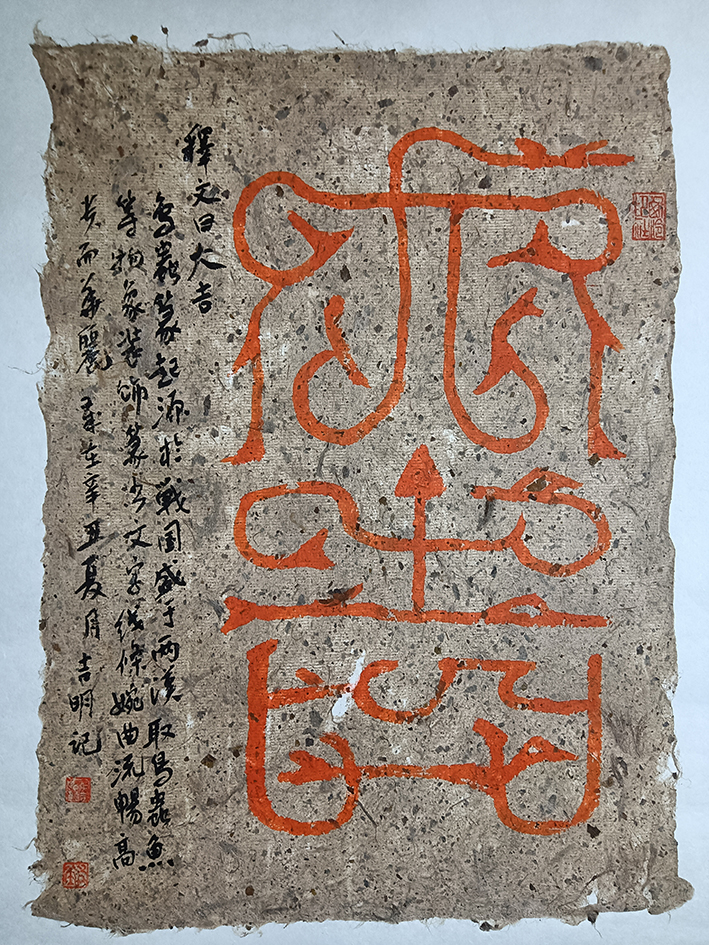 大吉
釋文曰大吉
鳥蟲篆起源於戰国盛于兩漢取鳥蟲魚
等物象裝飾篆书文字线條婉曲流暢高
贵而華麗 歲在辛丑夏月吉明記